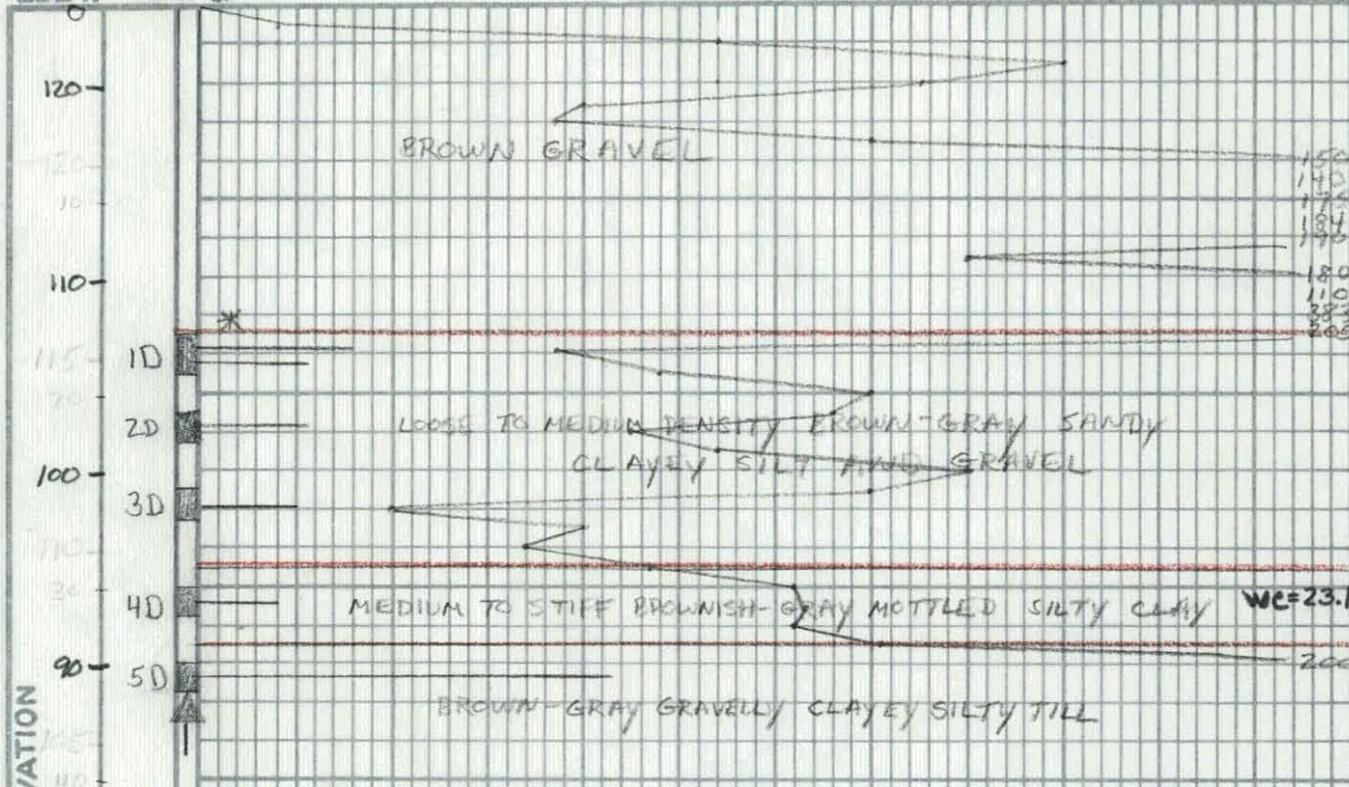 0
120
BROWN GRAVEL
150
140
175
184
190
110
180
110
383
205
115
1D
20
2D
LOOSE TO MEDIUM DENSITY BROWN-GRAY SANDY
CLAYEY SILT AND GRAVEL
100
3D
110
30
4D
MEDIUM TO STIFF BROWNISH-GRAY MOTTLED SILTY CLAY
WC=23.1
90
5D
200
BROWN-GRAY GRAVELLY CLAYEY SILTY TILL
105